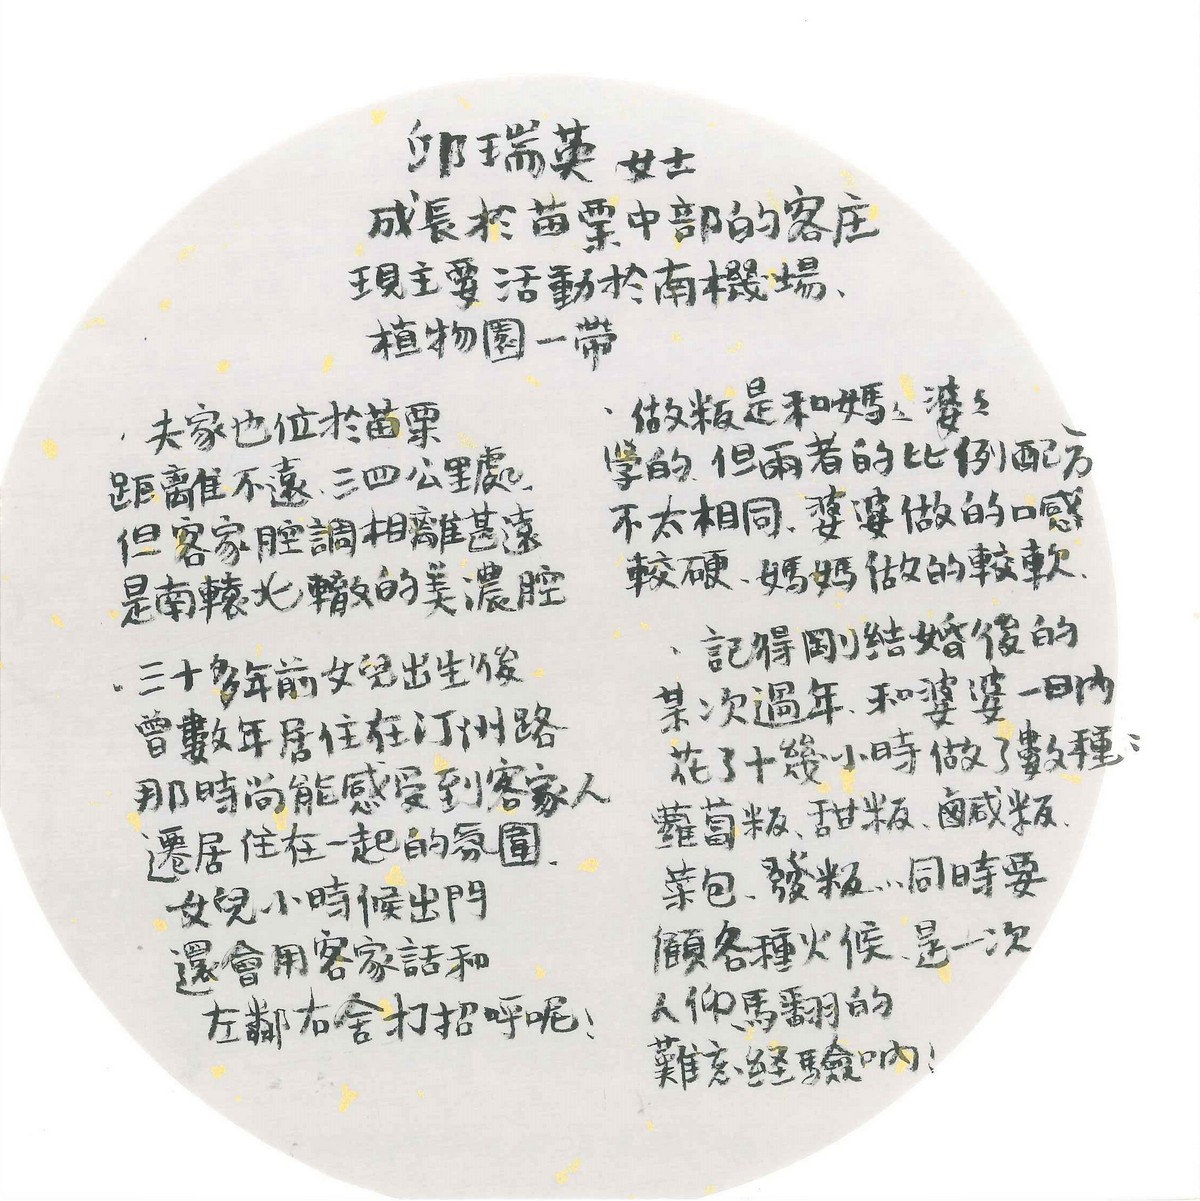 邱瑞英 女士
成長於苗栗中部的客庄
現主要活動於南機場、
植物園一帶
・夫家也位於苗栗
距離不遠、三四公里處、
但客家腔調相離甚遠
是南轅北轍的美濃腔
・三十多年前女兒出生後
曾數年居住在汀洲路
那時尚能感受到客家人
遷居住在一起的氛圍、
女兒小時候出門
還會用客家話和
左鄰右舍打招呼呢!
・做粄是和媽媽婆婆
學的、但兩者的比例配方
不太相同、婆婆做的口感
較硬、媽媽做的較軟、
・記得剛結婚後的
某次過年、和婆婆一日內
花了十幾小時做了數種:
蘿蔔粄、甜粄、鹹粄、
菜包、發粄…同時要
顧各種火候、是一次
人仰馬翻的
難忘經驗吶!